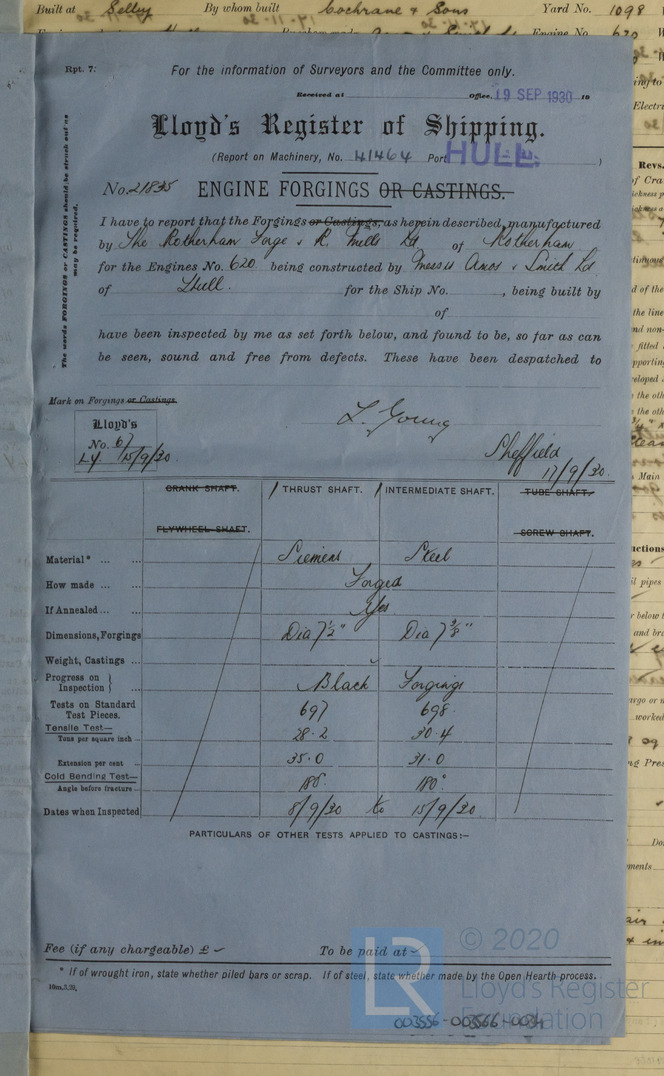 Built at Selby By whom built Cochrane & Sons Yard No. 1098
Engine No. 620
Rpt. 7.
For the information of Surveyors and the Committee only.
Received at Office, 19 SEP 1930 19
Lloyd's Register of Shipping.
(Report on Machinery, No. 41464 Port HULL. )
No. 21835 ENGINE FORGINGS OR CASTINGS.
The words FORGINGS or CASTINGS should be struck out as may be required.
I have to report that the Forgings or Castings, as herein described, manufactured
by The Rotherham Forge & R. Mills Ld of Rotherham
for the Engines No. 620 being constructed by Messrs Amos & Smith Ld
of Hull. for the Ship No. , being built by
of
have been inspected by me as set forth below, and found to be, so far as can
be seen, sound and free from defects. These have been despatched to
Mark on Forgings or Castings.
Lloyd's
No. 67
LY 15/9/30
L. Young
Sheffield
17/9/30.
CRANK SHAFT. / THRUST SHAFT. / INTERMEDIATE SHAFT. TUBE SHAFT.
FLYWHEEL SHAFT. SCREW SHAFT.
Material* ... ... Siemens Steel
How made ... ... Forged
If Annealed ... ... Yes
Dimensions, Forgings Dia 7½" Dia 7⅜"
Weight, Castings ...
Progress on Inspection } ... Black Forgings
Tests on Standard Test Pieces. 697 698.
Tensile Test—
Tons per square inch ... 28.2 30.4
Extension per cent ... 35.0 31.0
Cold Bending Test—
Angle before fracture ... 180° 180°
Dates when Inspected 8/9/30 to 15/9/30
PARTICULARS OF OTHER TESTS APPLIED TO CASTINGS:—
Fee (if any chargeable) £ To be paid at
* If of wrought iron, state whether piled bars or scrap. If of steel, state whether made by the Open Hearth process.
10m.3.29.
LR © 2020
Lloyd's Register
Foundation
003556-003566-0034